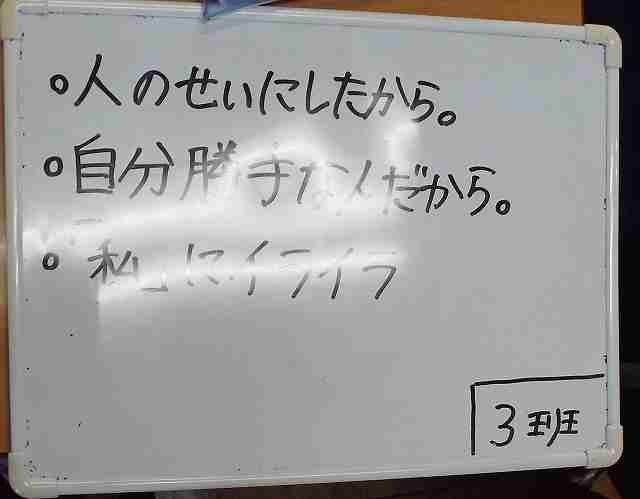 。人のせいにしたから。
。自分勝手なんだから。
。「私」にイライラ
3班